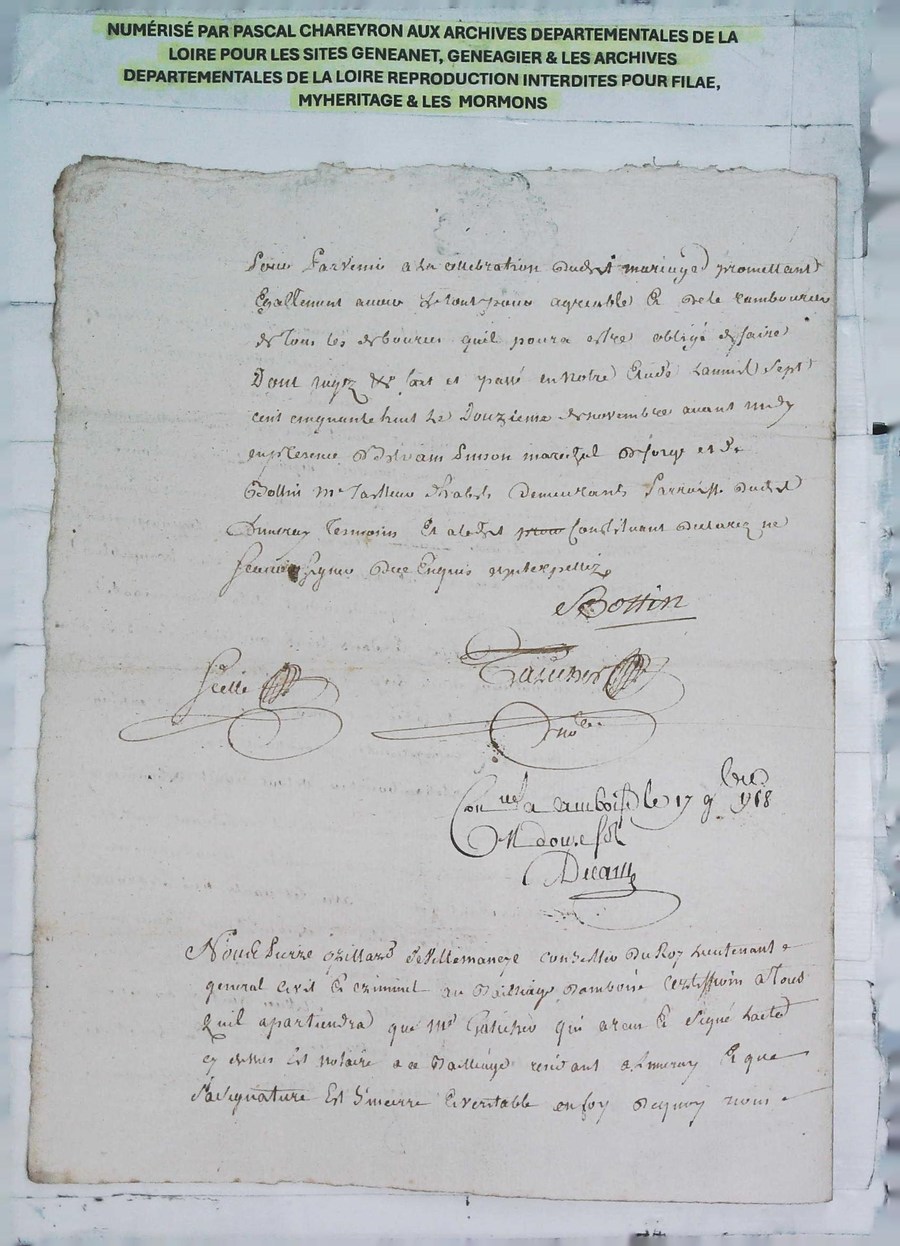 NUMÉRISÉ PAR PASCAL CHAREYRON AUX ARCHIVES DEPARTEMENTALES DE LA
LOIRE POUR LES SITES GENEANET, GENEAGIER & LES ARCHIVES
DEPARTEMENTALES DE LA LOIRE REPRODUCTION INTERDITES POUR FILAE,
MYHERITAGE & LES MORMONS
pour parvenir a la cellebration dudit mariage promettant
Egallement avoir le tout pour agreable & de le rambourcer
de tous les debources quil poura estre obligé de faire
Dont jugé &c fait et passé en notre Etude Lan mil Sept
cent cinquante huit Le Douzieme de novembre avant midy
en presence de Silvain Pinson marechal de forge et de
Bottin Me Tailleur d'habits Demeurants Parroisse dudit
temoins Et a ledit Constituant Declaré ne
Scavoir Signer Enquis
Bottin
Scellé
Gaucher
Note
Con lle a amboise le 17 9bre 1758
R douze sols
Nous Pierre de Villemaneye Conseiller du Roy Lieutenant
general Civil & criminel au Bailliage d'amboise Certiffions a Tous
quil apartiendra que Me Gaucher qui a recu & Signé Lacte
cy dessus Est notaire a ce Bailliage residant a & que
Sa Signature Est Sincerre & veritable en foy de quoy nous